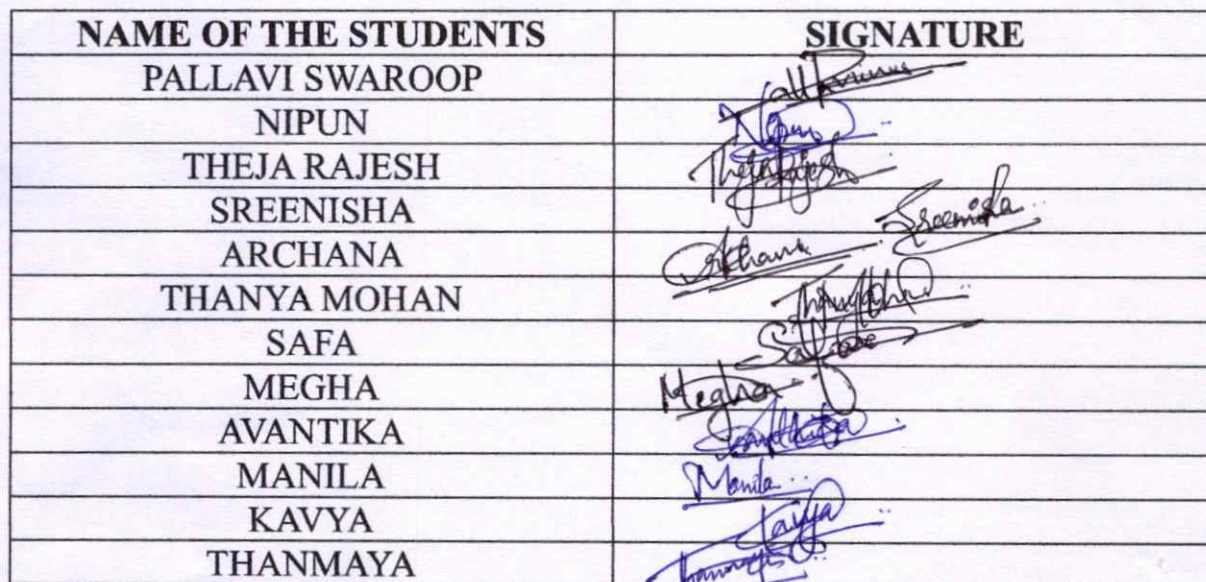 NAME OF THE STUDENTS SIGNATURE
PALLAVI SWAROOP
NIPUN Nipun
THEJA RAJESH Theja Rajesh
SREENISHA Sreenisha
ARCHANA
THANYA MOHAN
SAFA
MEGHA Megha
AVANTIKA
MANILA Manila
KAVYA Kavya
THANMAYA